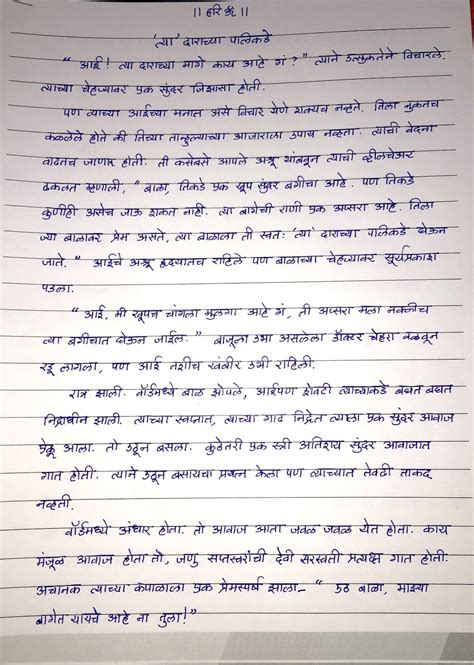 || हरि ॐ ||
'त्या' दाराच्या पलिकडे
" आई ! त्या दाराच्या मागे काय आहे गं ? " त्याने उत्सुकतेने विचारले.
त्याच्या चेहऱ्यावर एक सुंदर जिज्ञासा होती.
पण त्याच्या आईच्या मनात असे विचार येणे शक्यच नव्हते. तिला नुकतच
कळलेले होते की तिच्या तान्हुल्याच्या आजाराला उपाय नव्हता. त्याची वेदना
वाढतच जाणार होती. ती कसेबसे आपले अश्रू थांबवून त्याची व्हीलचेअर
ढकलत म्हणाली, " बाळा, तिकडे एक खूप सुंदर बगीचा आहे. पण तिकडे
कुणीही असेच जाऊ शकत नाही. त्या बागेची राणी एक अप्सरा आहे. तिला
ज्या बाळावर प्रेम असते, त्या बाळाला ती स्वतः 'त्या' दाराच्या पलिकडे घेऊन
जाते. " आईचे अश्रू हृदयातच राहिले पण बाळाच्या चेहऱ्यावर सूर्यप्रकाश
पडला.
" आई, मी खूपच चांगला मुलगा आहे गं, ती अप्सरा मला नक्कीच
त्या बगीचात घेऊन जाईल. " बाजूला उभा असलेला डॉक्टर चेहरा वळवून
रडू लागला, पण आई तशीच खंबीर उभी राहिली.
रात्र झाली. वॉर्डमध्ये बाळ झोपले, आईपण शेवटी त्याच्याकडे बघत बघत
निद्राधीन झाली. त्याच्या स्वप्नात, त्याच्या गाढ निद्रेत त्याला एक सुंदर आवाज
ऐकू आला. तो उठून बसला. कुठेतरी एक स्त्री अतिशय सुंदर आवाजात
गात होती. त्याने उठून बसायचा प्रयत्न केला पण त्याच्यात तेवढी ताकद
नव्हती.
वॉर्डमध्ये अंधार होता. तो आवाज आता जवळ जवळ येत होता. काय
मंजूळ आवाज होता तो, जणु सप्तस्वरांची देवी सरस्वती प्रत्यक्ष गात होती.
अचानक त्याच्या कपाळाला एक प्रेमस्पर्श झाला- " उठ बाळा, माझ्या
बागेत यायचे आहे ना तुला ! "